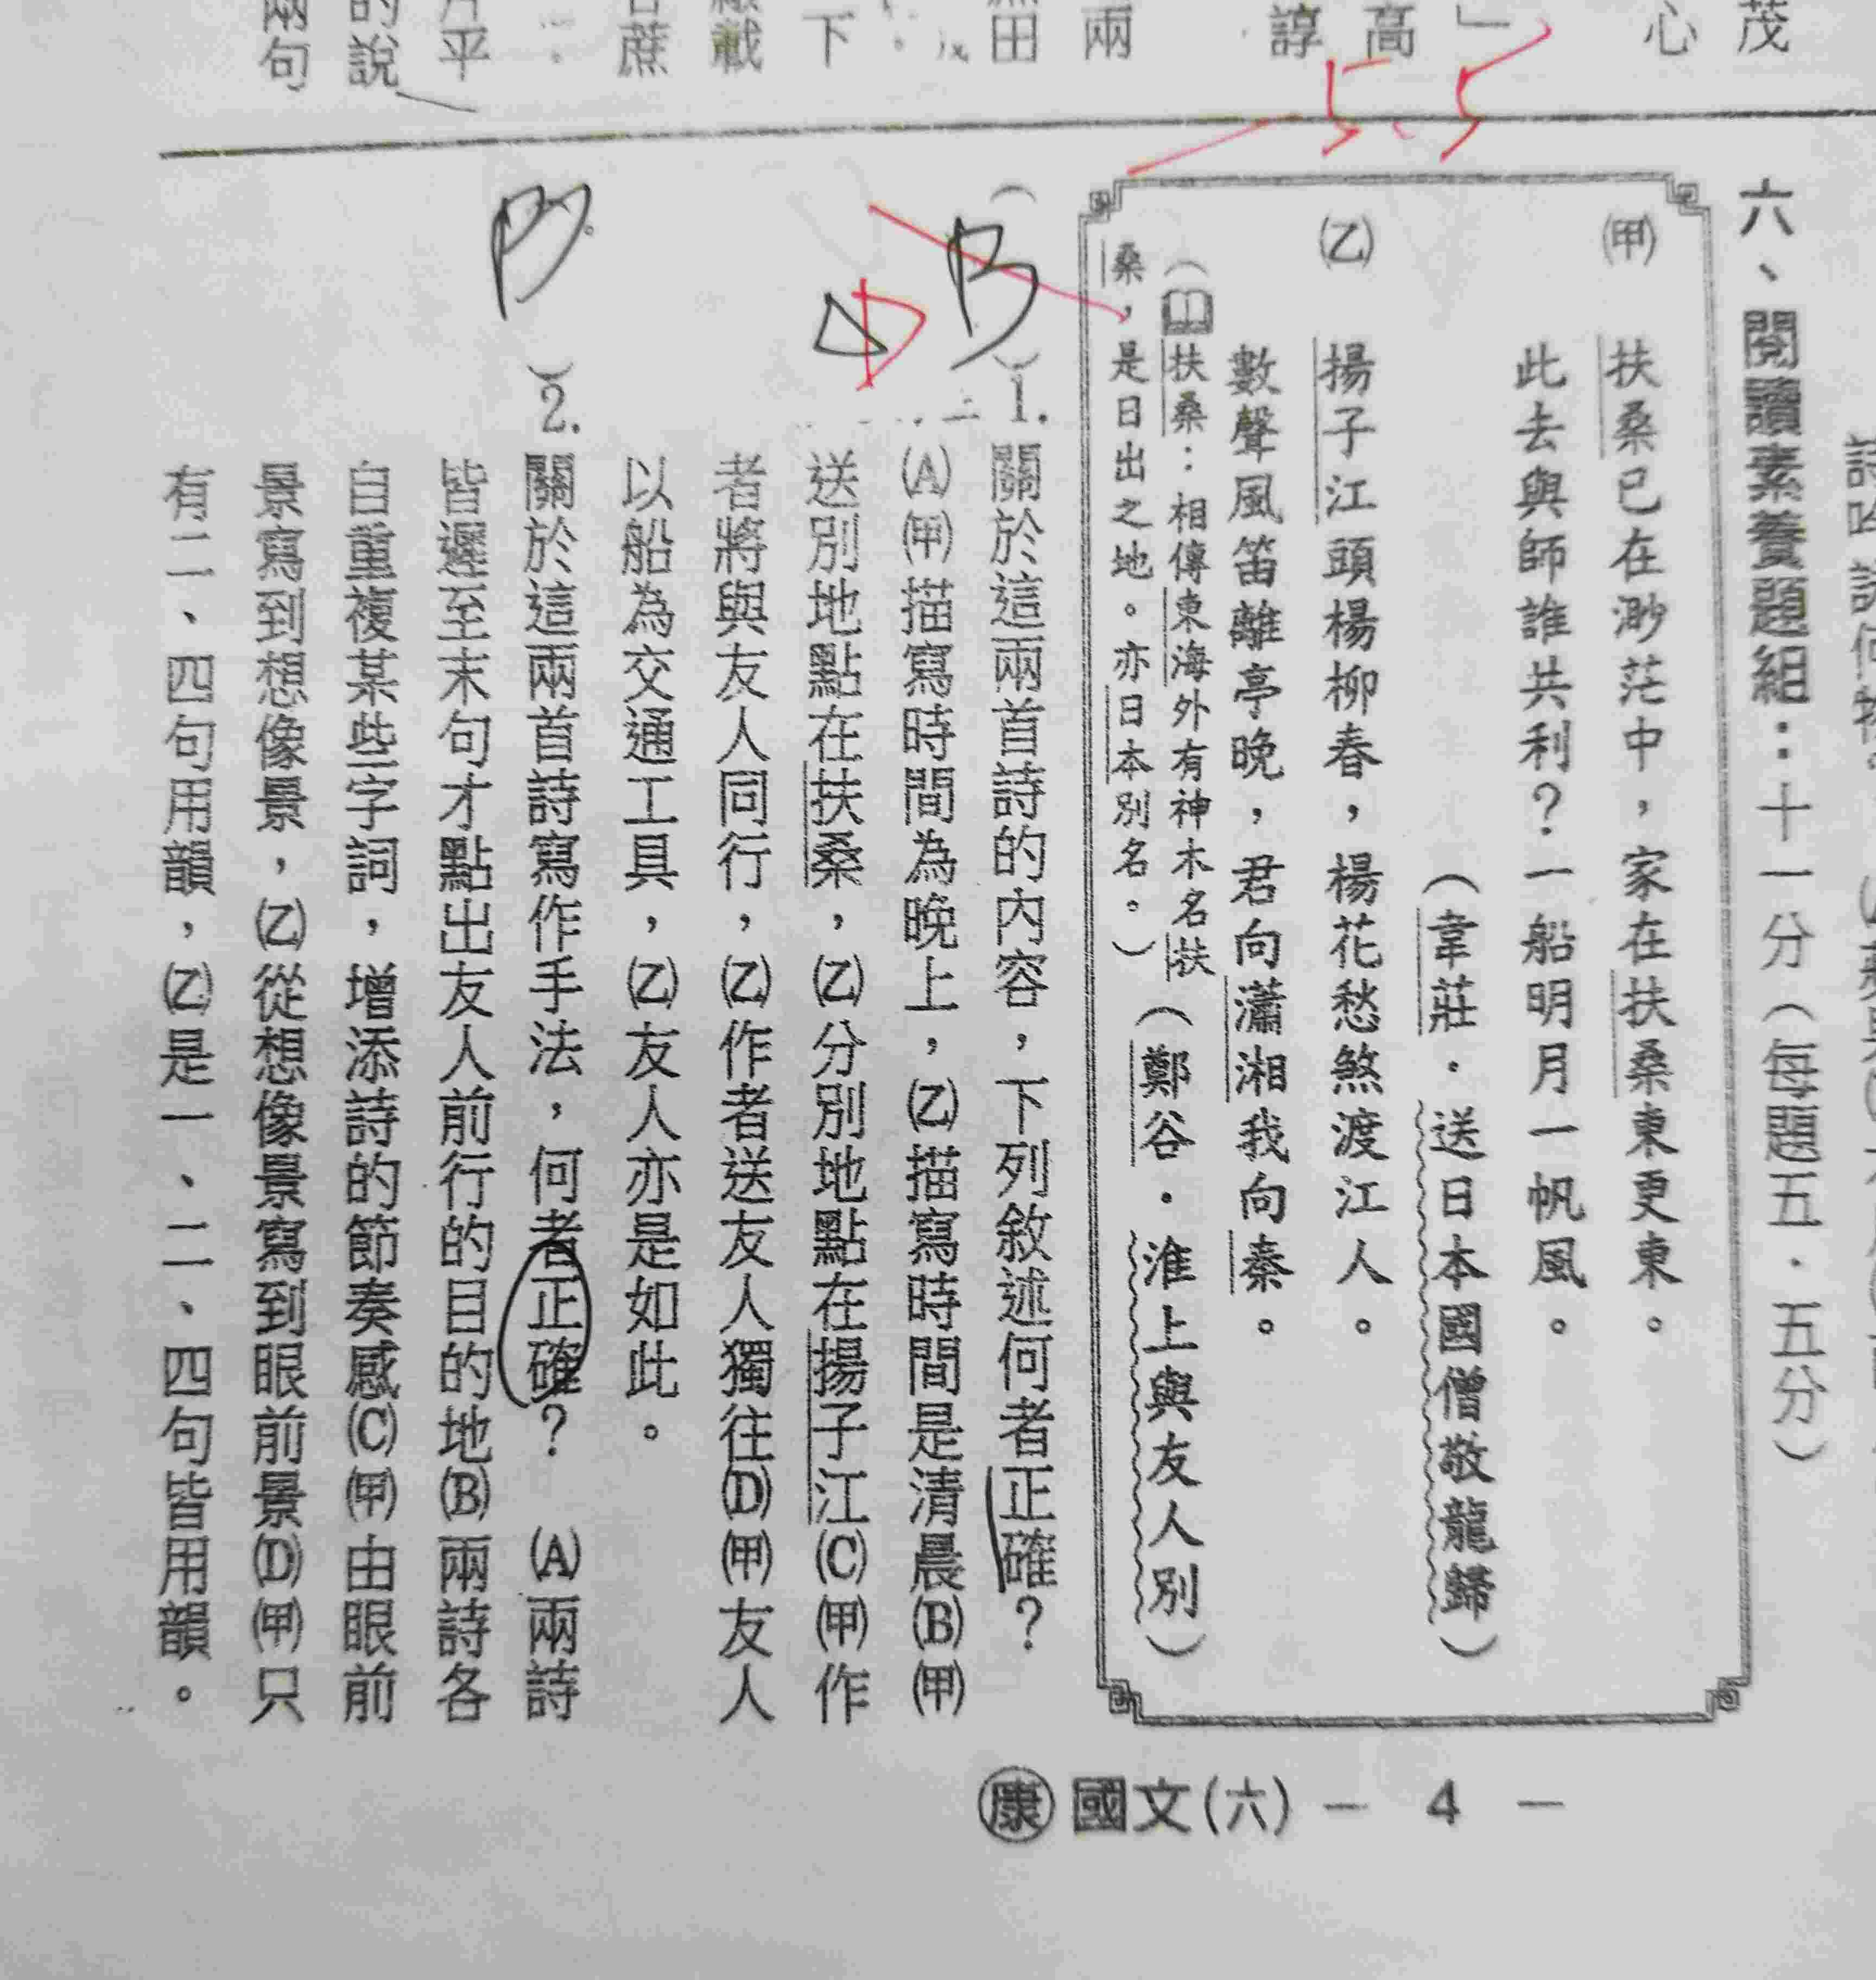 茂
心
高
諄
兩
田
下
載
蔗
平
的說
兩句
六、閱讀素養題組：十一分（每題五．五分）
㈙ 扶桑已在渺茫中，家在扶桑東更東。
此去與師誰共利？一船明月一帆風。
（韋莊．送日本國僧敬龍歸）
㈚ 揚子江頭楊柳春，楊花愁煞渡江人。
數聲風笛離亭晚，君向瀟湘我向秦。
（扶桑：相傳東海外有神木名扶
桑，是日出之地。亦日本別名。）
（鄭谷．淮上與友人別）
5.5
（B）1. 關於這兩首詩的內容，下列敘述何者正確？
(A)㈙描寫時間為晚上，㈚描寫時間是清晨(B)㈙
送別地點在扶桑，㈚分別地點在揚子江(C)㈙作
者將與友人同行，㈚作者送友人獨往(D)㈙友人
以船為交通工具，㈚友人亦是如此。
D
（B）2. 關於這兩首詩寫作手法，何者正確？ (A)兩詩
皆遲至末句才點出友人前行的目的地(B)兩詩各
自重複某些字詞，增添詩的節奏感(C)㈙由眼前
景寫到想像景，㈚從想像景寫到眼前景(D)㈙只
有二、四句用韻，㈚是一、二、四句皆用韻。
康 國文(六) － 4 －